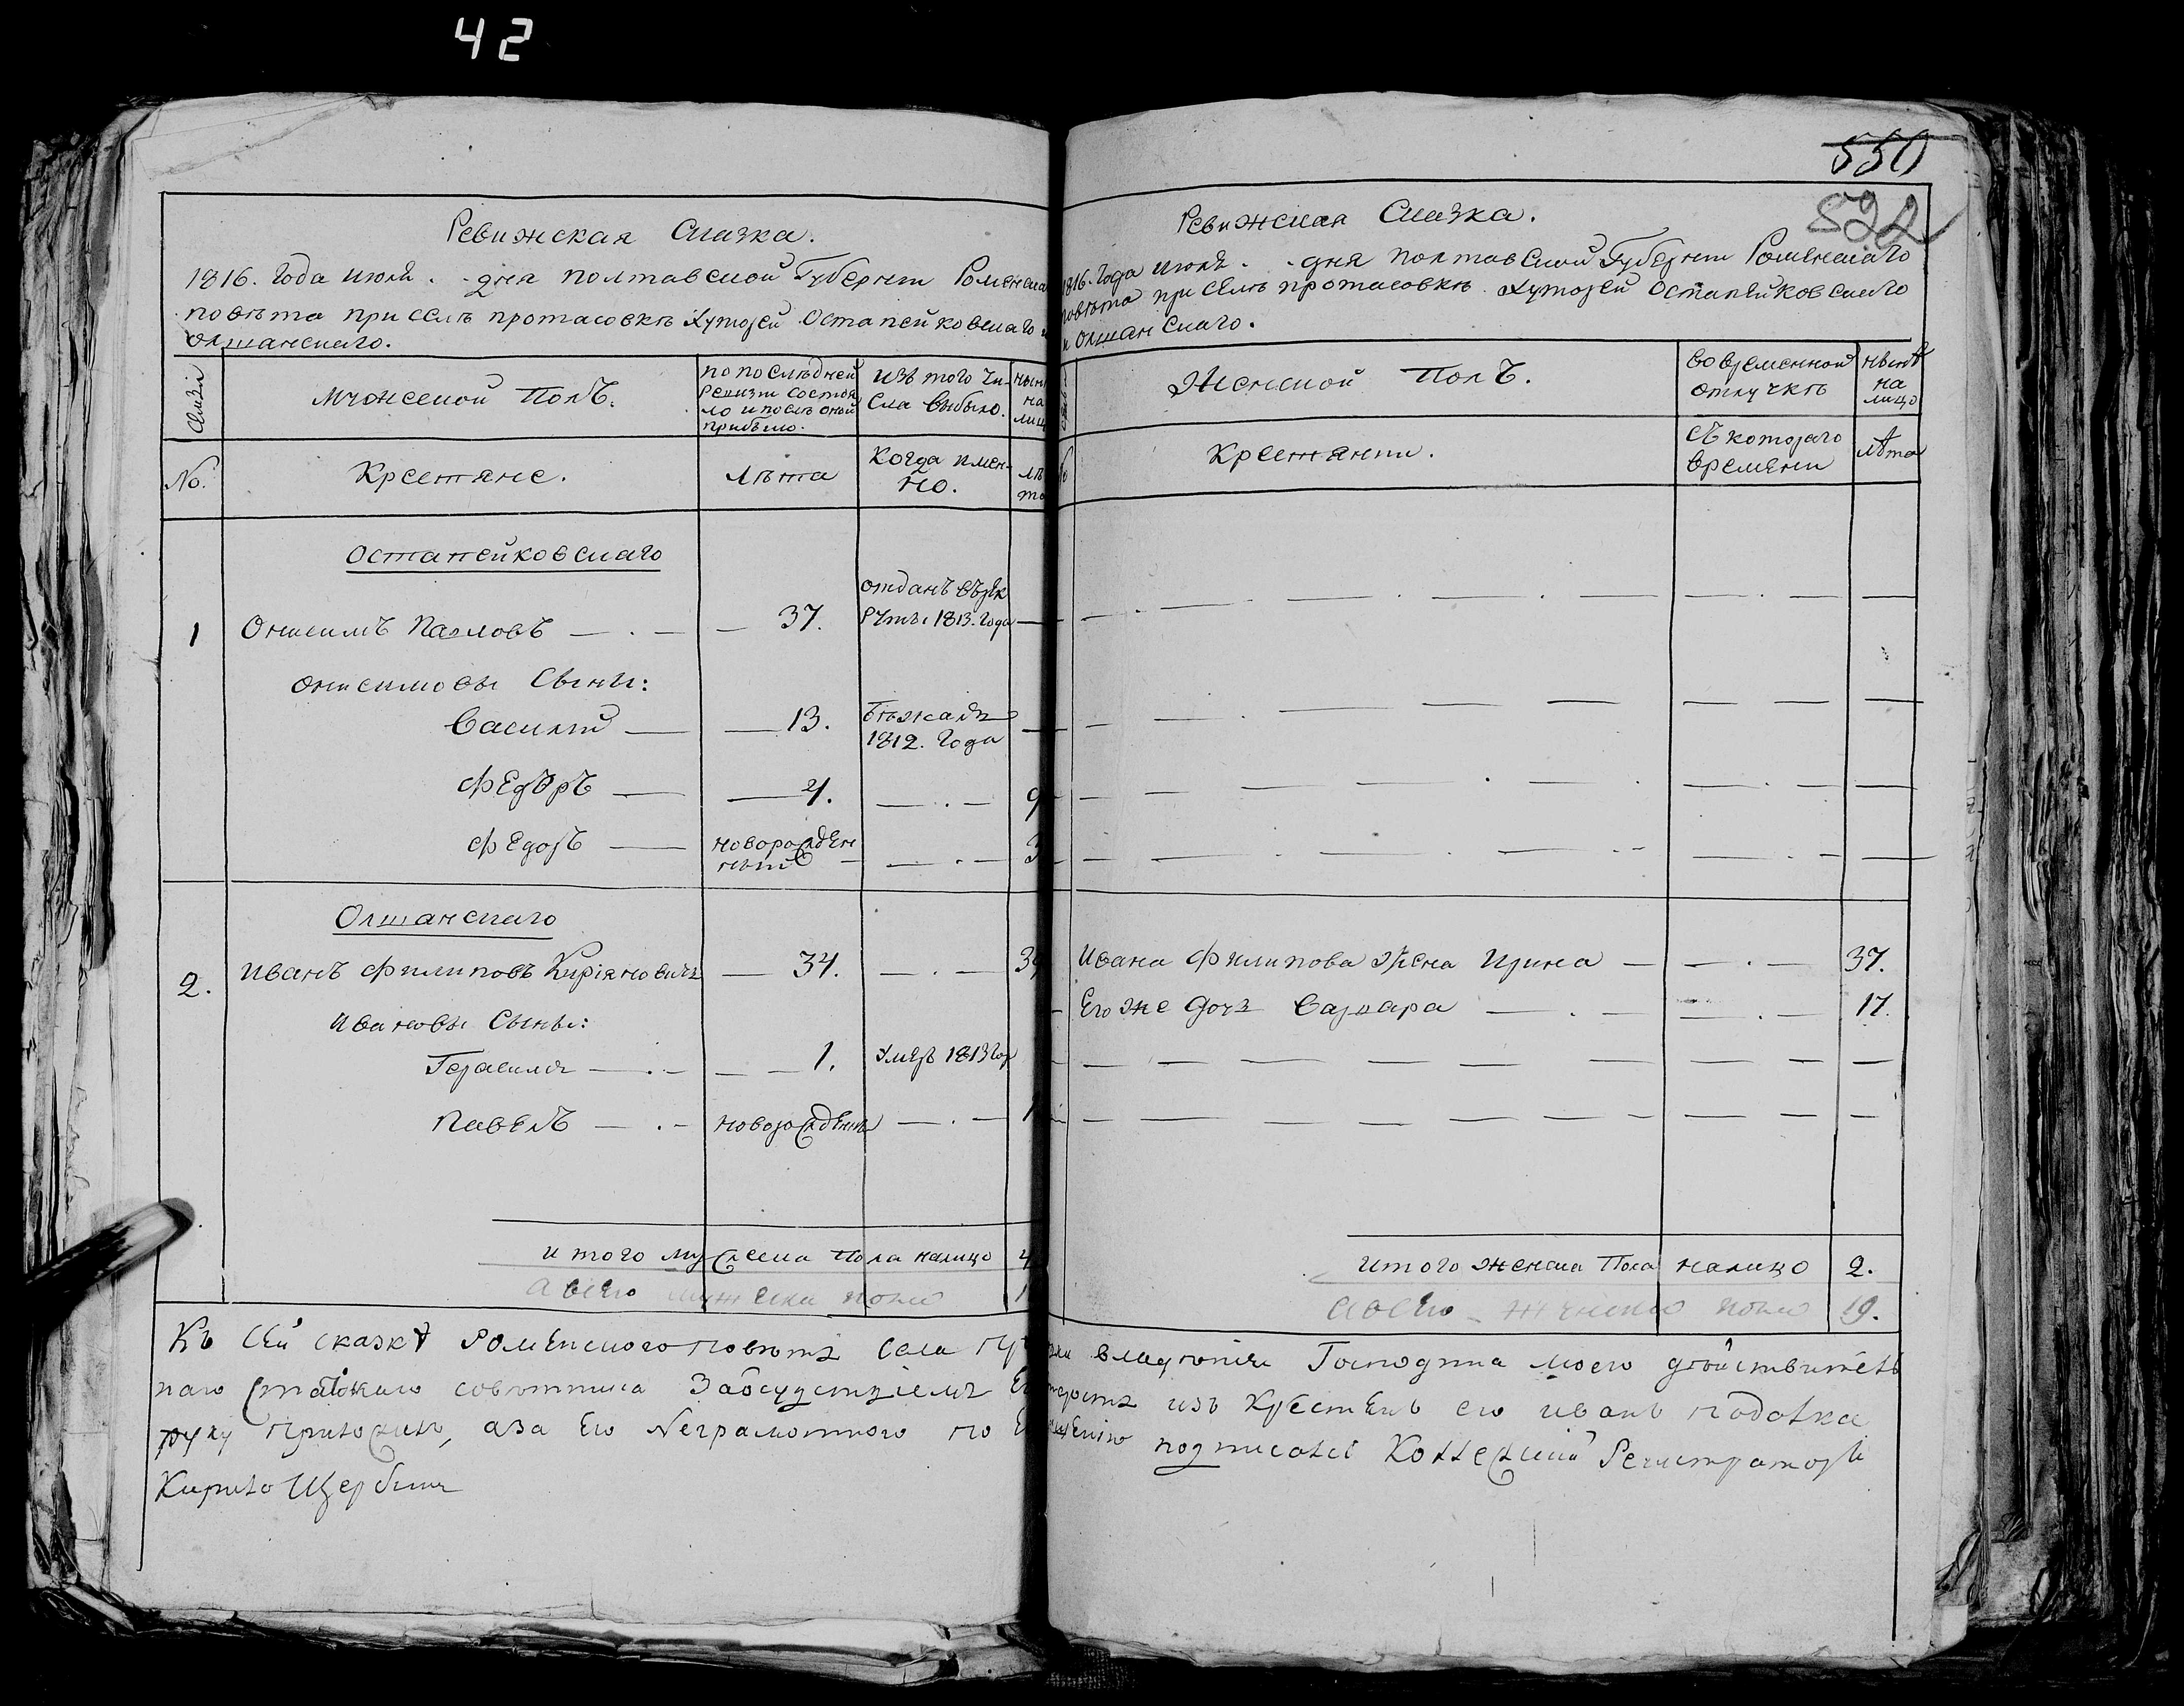 42
Ревижская Сказка.
1816. Года июля . - дня полтавской Губерніи Роменска
повѣта при селѣ протасовкѣ Хуторей Остапейковскаго и
Олшанскаго.
Семьи
Мужеской Полъ.
по послѣдней
Ревизіи состоя
ло и послѣ оной
прибыло.
изъ того чи-
сла выбыло.
нынѣ
на
лицо
No.
Крестяне.
Лѣта
Когда имен-
но.
лѣ
та
Остапейковскаго
1 Онисимъ Павловъ — . — — 37. отданъ въ рек
руты 1813. Года —
Онисимовы Сыны:
Василій — — 13. бѣжалъ
1812. Года —
Федоръ — — 4. — . — 9
Федотъ — новорожден
ный — — . — 3
Олшанскаго
2. Иванъ Филиповъ Киріяновичъ — 34. — . — 39
Ивановы Сыны:
Герасимъ — . — — — 1. Умеръ 1813 Год
Павелъ — . — новорожденнъ — . — 1
Итого мужеска Пола налицо 4
А всего мужеска пола 1
550
522
Ревижская Сказка.
1816. Года июля . - дня полтавской Губерніи Роменскаго
повѣта при селѣ протасовкѣ Хуторей Остапейковскаго
и Олшанскаго.
Женской Полъ.
во временной
отлучкѣ
нынѣ
на
лицо
Крестянки.
Съ котораго
времени
лѣта
Ивана Филипова жена Ирина — — . — 37.
Его же дочь Варвара — . — — . — 17.
Итого женска Пола налицо 2.
А всего - женска пола 19.
Къ сей сказкѣ Роменского повѣта села
владѣнія Господина моего дѣйствитель
наго Статского совѣтника За
изъ Крестенъ его иванъ
руку приложилъ, а за Его Неграмотного по
подписалъ Коллежский Регистраторъ
Кирило Щербина